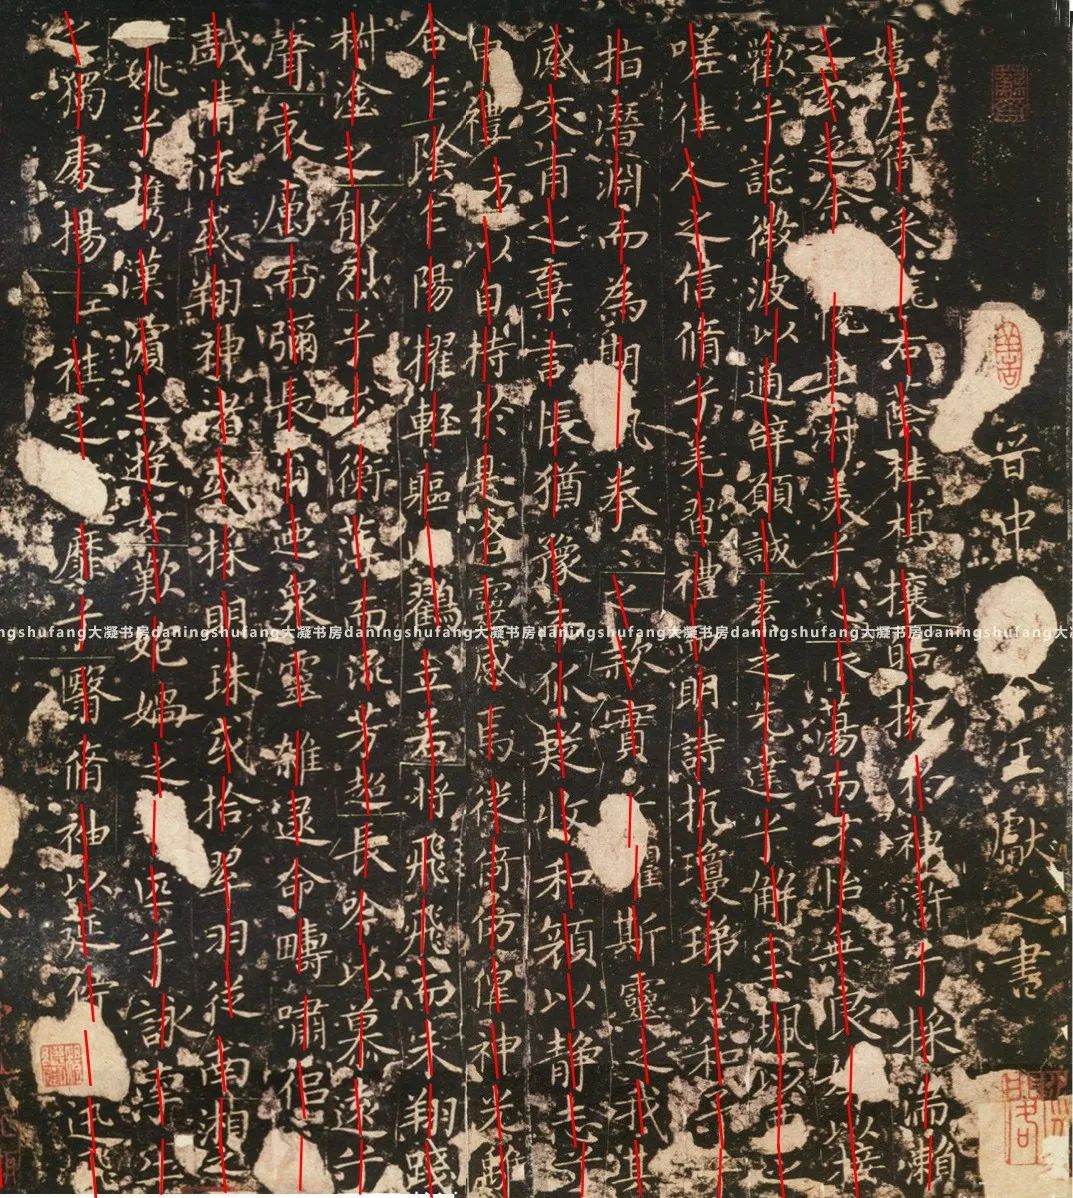 晉中令王獻之書
嬉左倚采旄右蔭桂旗攘皓捥於神滸兮採湍瀨
之玄芝余悅其淑美兮心振蕩而不怡無良媒以接
歡兮託微波以通辭願誠素之先達兮解玉珮以要之
嗟佳人之信脩兮羌習禮而明詩抗瓊珶以和予兮
指潛淵而為期執拳拳之款實懼斯靈之我欺
感交甫之棄言悵猶豫而狐疑收和顏以靜志兮
申禮防以自持於是洛靈感焉徙倚傍偟神光離
合乍陰乍陽擢輕軀鶴立若將飛飛而未翔踐
椒塗之郁烈兮步衡薄而流芳超長吟以慕遠兮
聲哀厲而彌長爾迺眾靈雜遝命疇嘯侶
戲清流或翔神渚或採明珠或拾翠羽從南湘之
姚兮攜漢濱之遊女歎匏媧之匹兮詠牽牛
之獨處揚輕袿之靡兮翳脩袖以延佇迅飛
ngshufang大凝书房daningshufang大凝书房daningshufang大凝书房daningshufang大凝书房daningshufang大凝书房daningshufang大凝